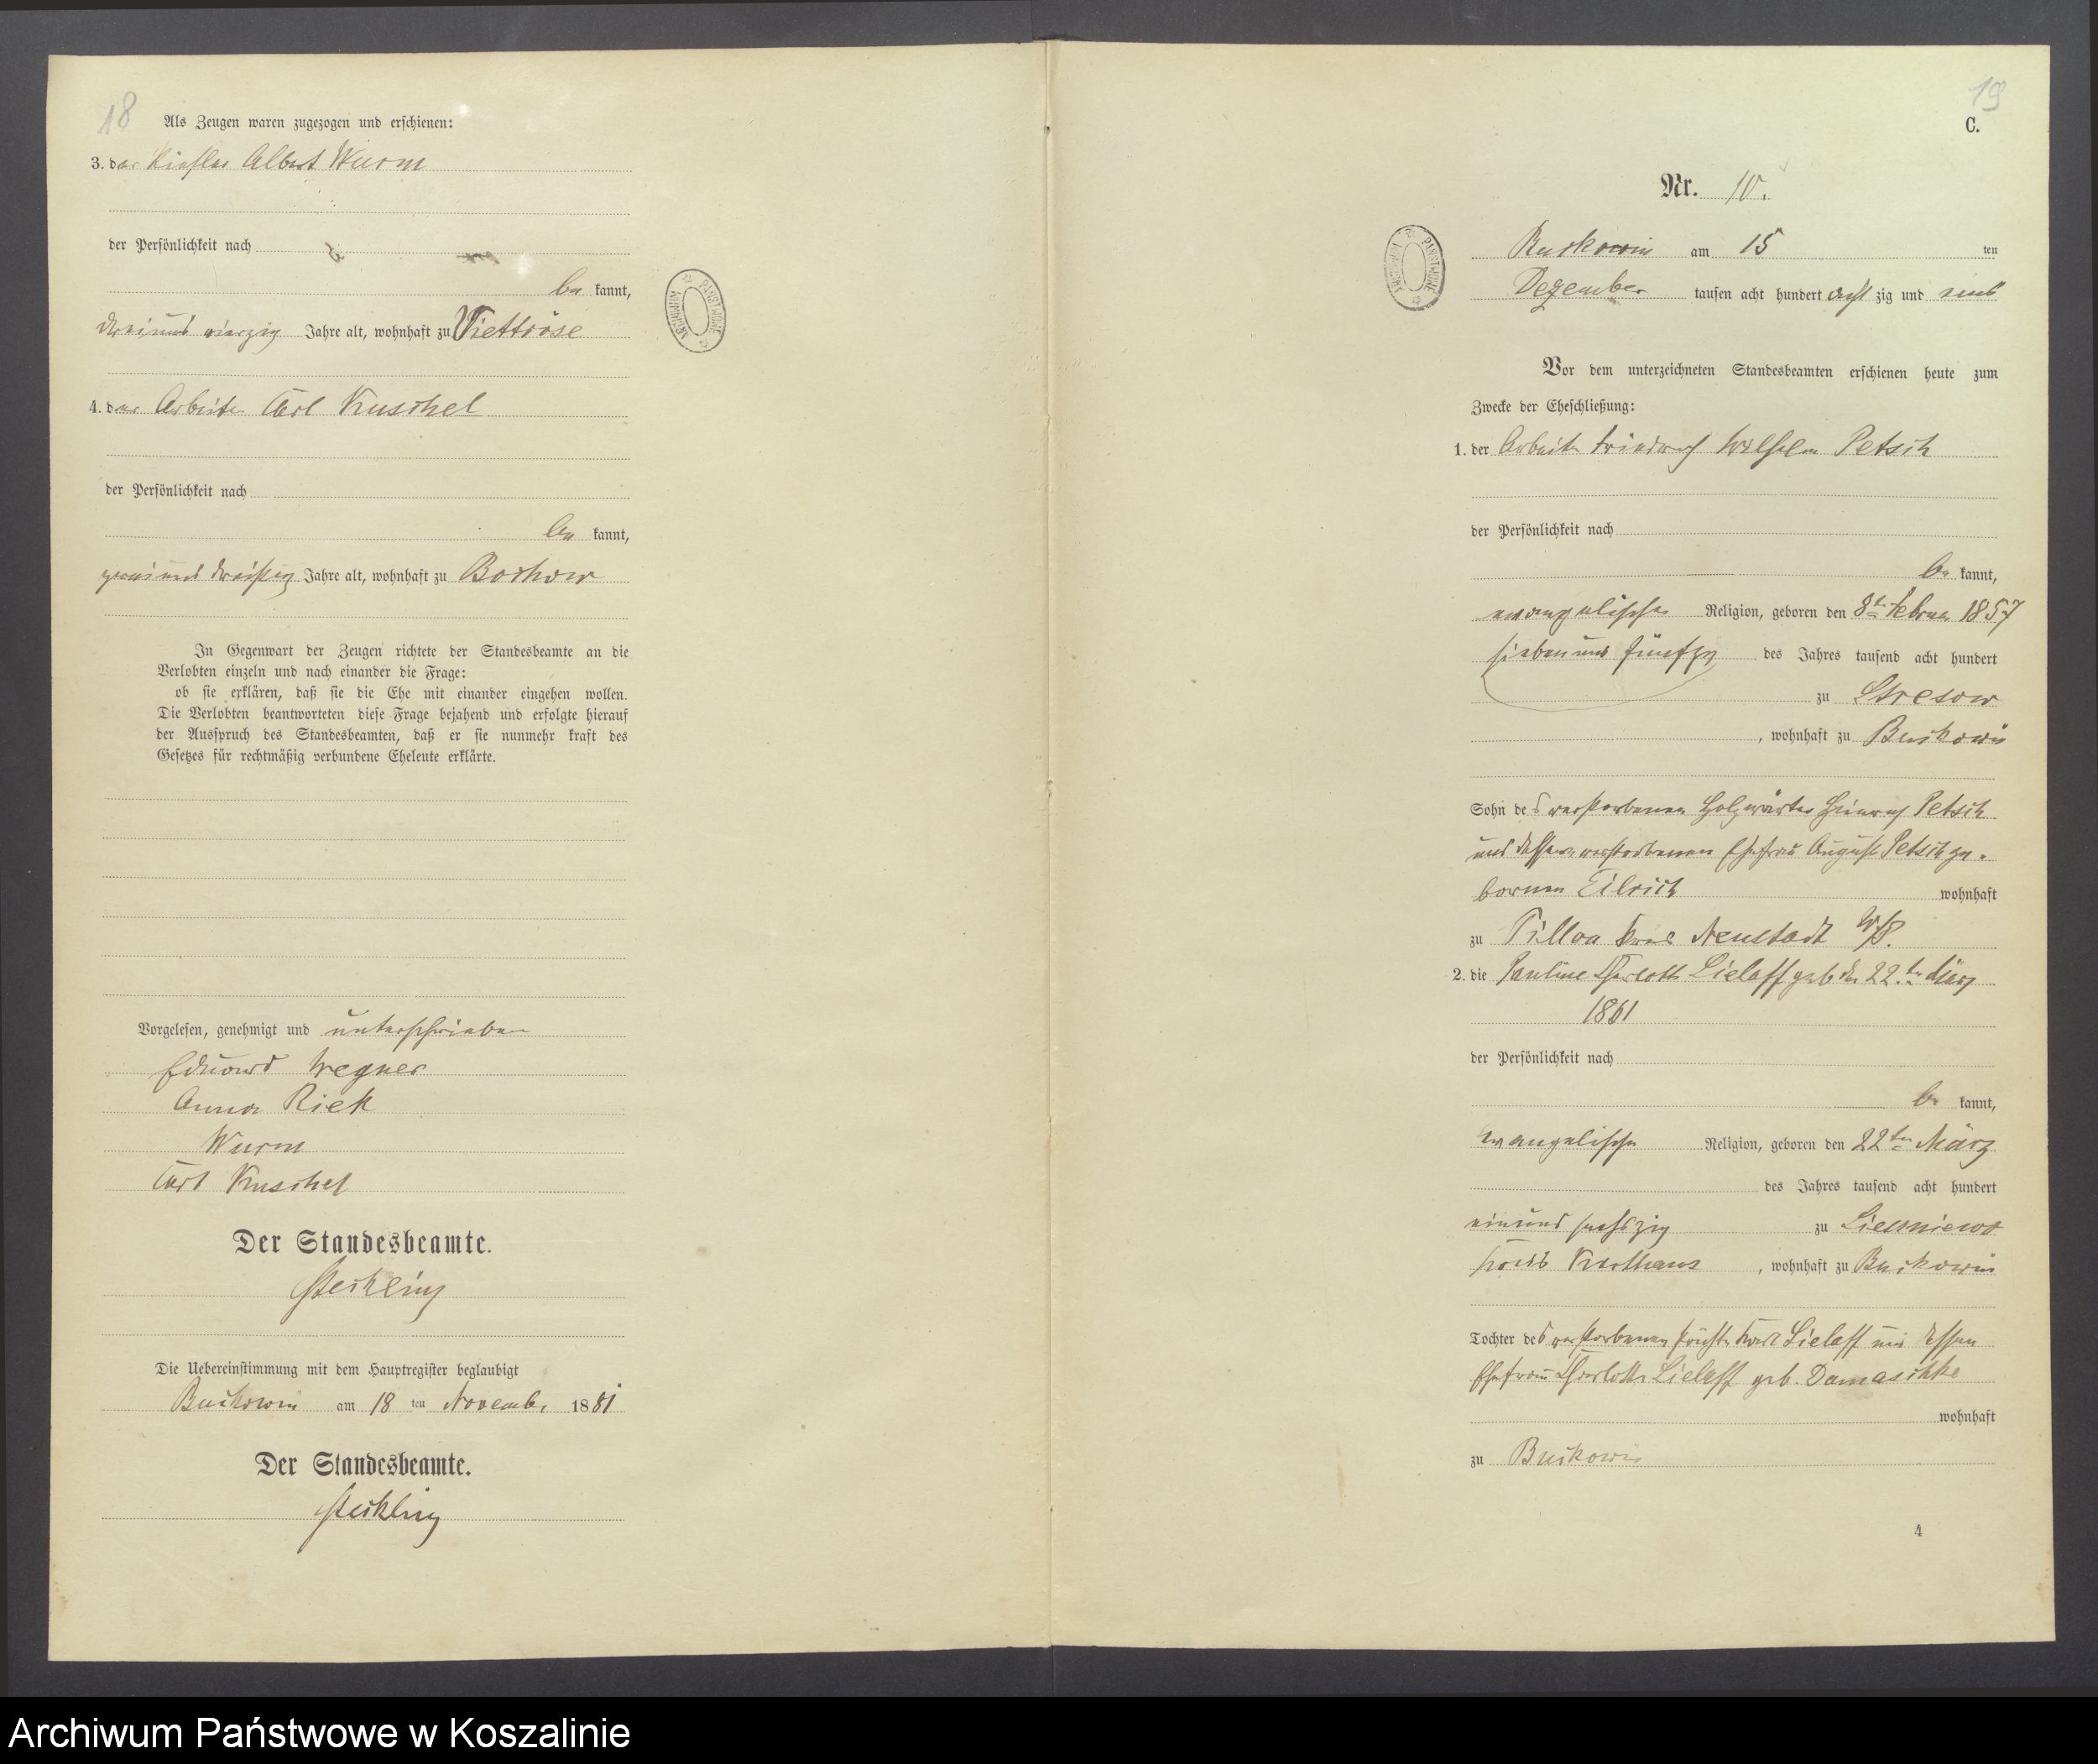 18
Als Zeugen waren zugezogen und erschienen:
3. der Albert Wurm
der Persönlichkeit nach
be kannt,
drei und vierzig Jahre alt, wohnhaft zu Viettröse
4. der Arbeiter Carl Kuschel
der Persönlichkeit nach
be kannt,
zwei und dreißig Jahre alt, wohnhaft zu Bochow
In Gegenwart der Zeugen richtete der Standesbeamte an die
Verlobten einzeln und nach einander die Frage:
ob sie erklären, daß sie die Ehe mit einander eingehen wollen.
Die Verlobten beantworteten diese Frage bejahend und erfolgte hierauf
der Ausspruch des Standesbeamten, daß er sie nunmehr kraft des
Gesetzes für rechtmäßig verbundene Eheleute erklärte.
Vorgelesen, genehmigt und unterschrieben
Eduard Wegner
Anna Riek
Wurm
Carl Kuschel
Der Standesbeamte.
Steckling
Die Uebereinstimmung mit dem Hauptregister beglaubigt
Buckowin am 18 ten November 1881
Der Standesbeamte.
Steckling
ARCHIWUM PAŃSTWOWE
19
C.
Nr. 10.
ARCHIWUM PAŃSTWOWE
Buckowin am 15 ten
Dezember tausen acht hundert acht zig und eins
Vor dem unterzeichneten Standesbeamten erschienen heute zum
Zwecke der Eheschließung:
1. der Arbeiter Friedrich Wilhelm Petsch
der Persönlichkeit nach
be kannt,
evangelischer Religion, geboren den 8ten Februar 1857
sieben und fünfzig des Jahres tausend acht hundert
zu Stresow
, wohnhaft zu Buckowin
Sohn des verstorbenen Holzwärter Heinrich Petsch
und dessen verstorbenen Ehefrau August Petsch ge-
bornen Eilrich wohnhaft
zu Kreis Neustadt W/P.
2. die Pauline Charlotte Lielaff geb den 22.ten März
1861
der Persönlichkeit nach
be kannt,
evangelischer Religion, geboren den 22ten März
des Jahres tausend acht hundert
ein und sechszig zu
Kreis Karthaus , wohnhaft zu Buckowin
Tochter des verstorbenen Lielaff und dessen
Ehefrau Charlotte Lielaff geb. Damaschke
wohnhaft
zu Buckowin
4
Archiwum Państwowe w Koszalinie